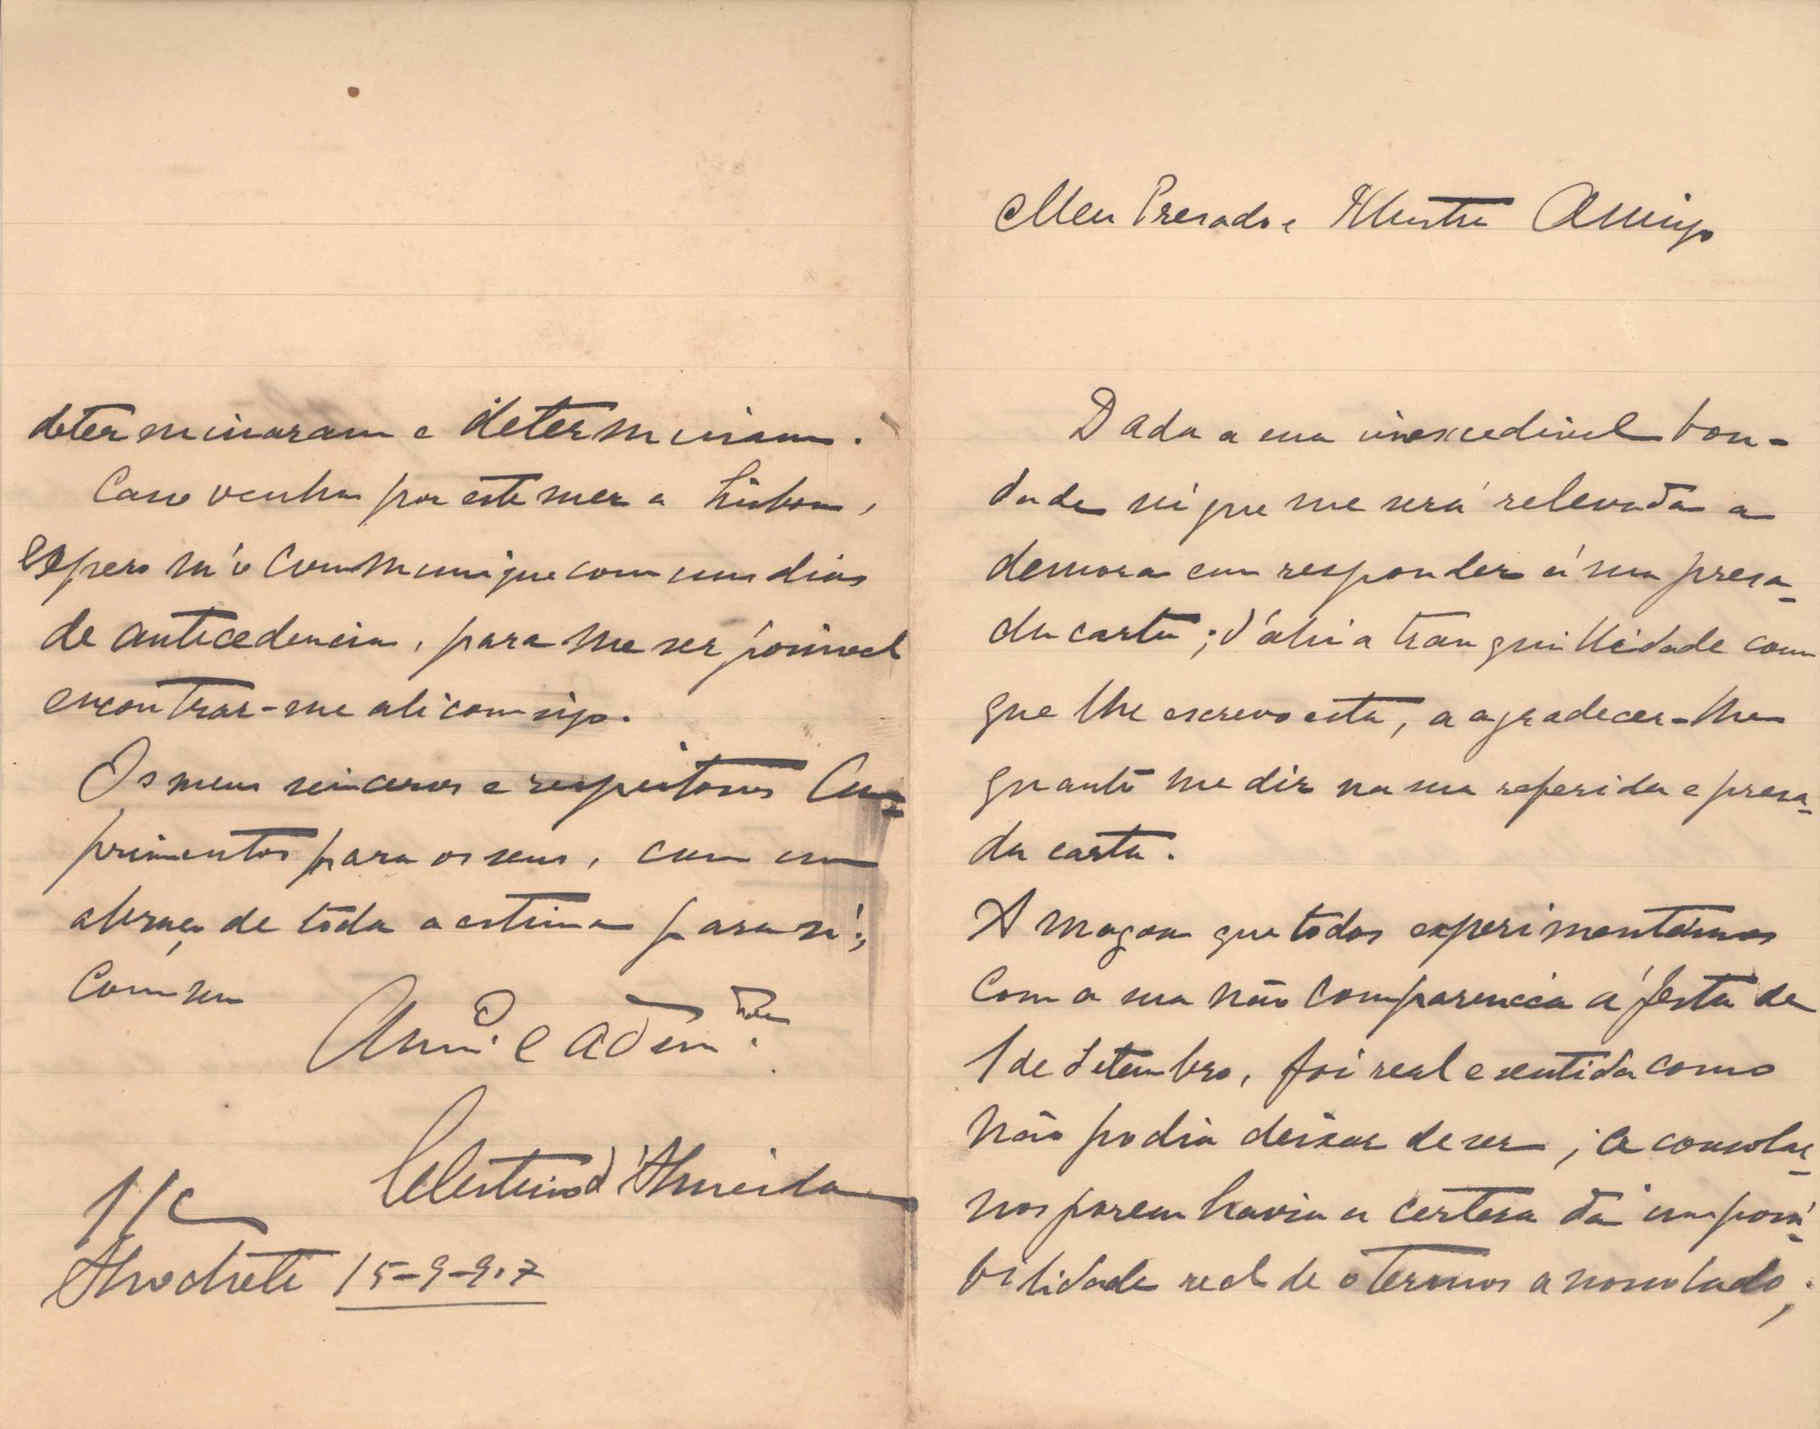 Meu Presado e Illustre Amigo
Dada a sua inexcedivel bon-
dade sei que me será relevada a
demora em responder á sua presa-
da carta; d'ahi a tranquillidade com
que lhe escrevo esta, a agradecer-lhe
quanto me diz na sua referida e presa-
da carta.
A magoa que todos experimentámos
com a sua não comparencia á festa de
1 de Setembro, foi real e sentida como
não podia deixar de ser; a consolar-
nos porem havia a certesa da impossi-
bilidade real de o termos a nosso lado,
determinaram e determinam.
Caso venha por este mez a Lisboa,
espero m'o communique com uns dias
de antecedencia, para me ser possivel
encontrar-me ali comsigo.
Os meus sinceros e respeitosos Cum-
primentos para os seus, com um
abraço de toda a estima para si;
como seu
Am.º e adm.
Celestino d'Almeida
S/c
Alcochete 15-9-907